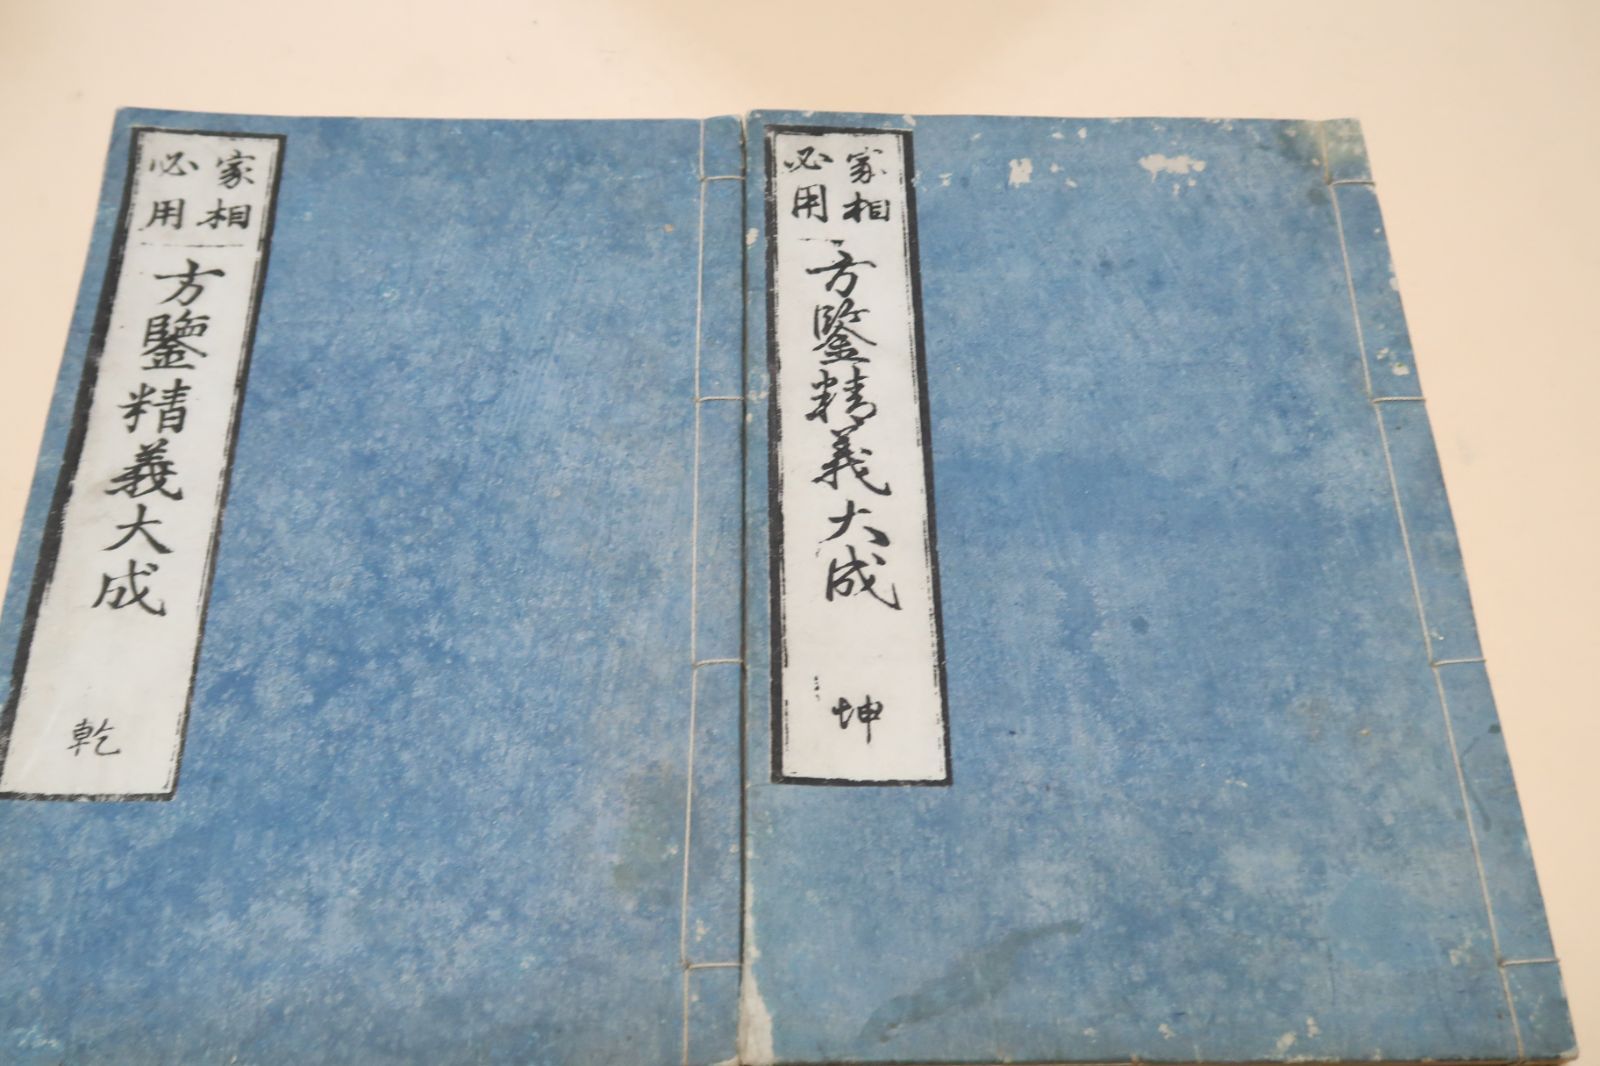 家相
必用
方鑒精義大成
乾
家相
必用
方鑒精義大成
坤